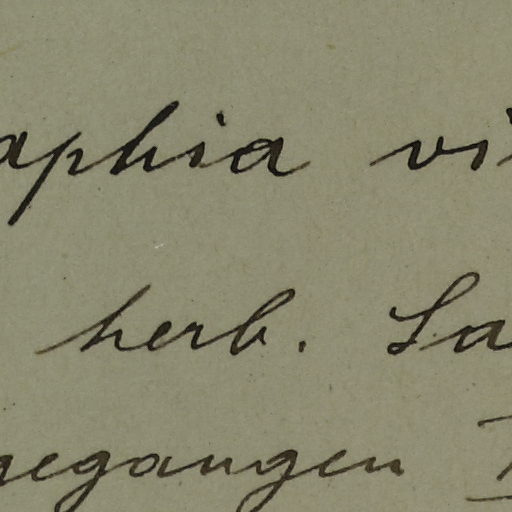 aphia vi
herb. La
gegangen